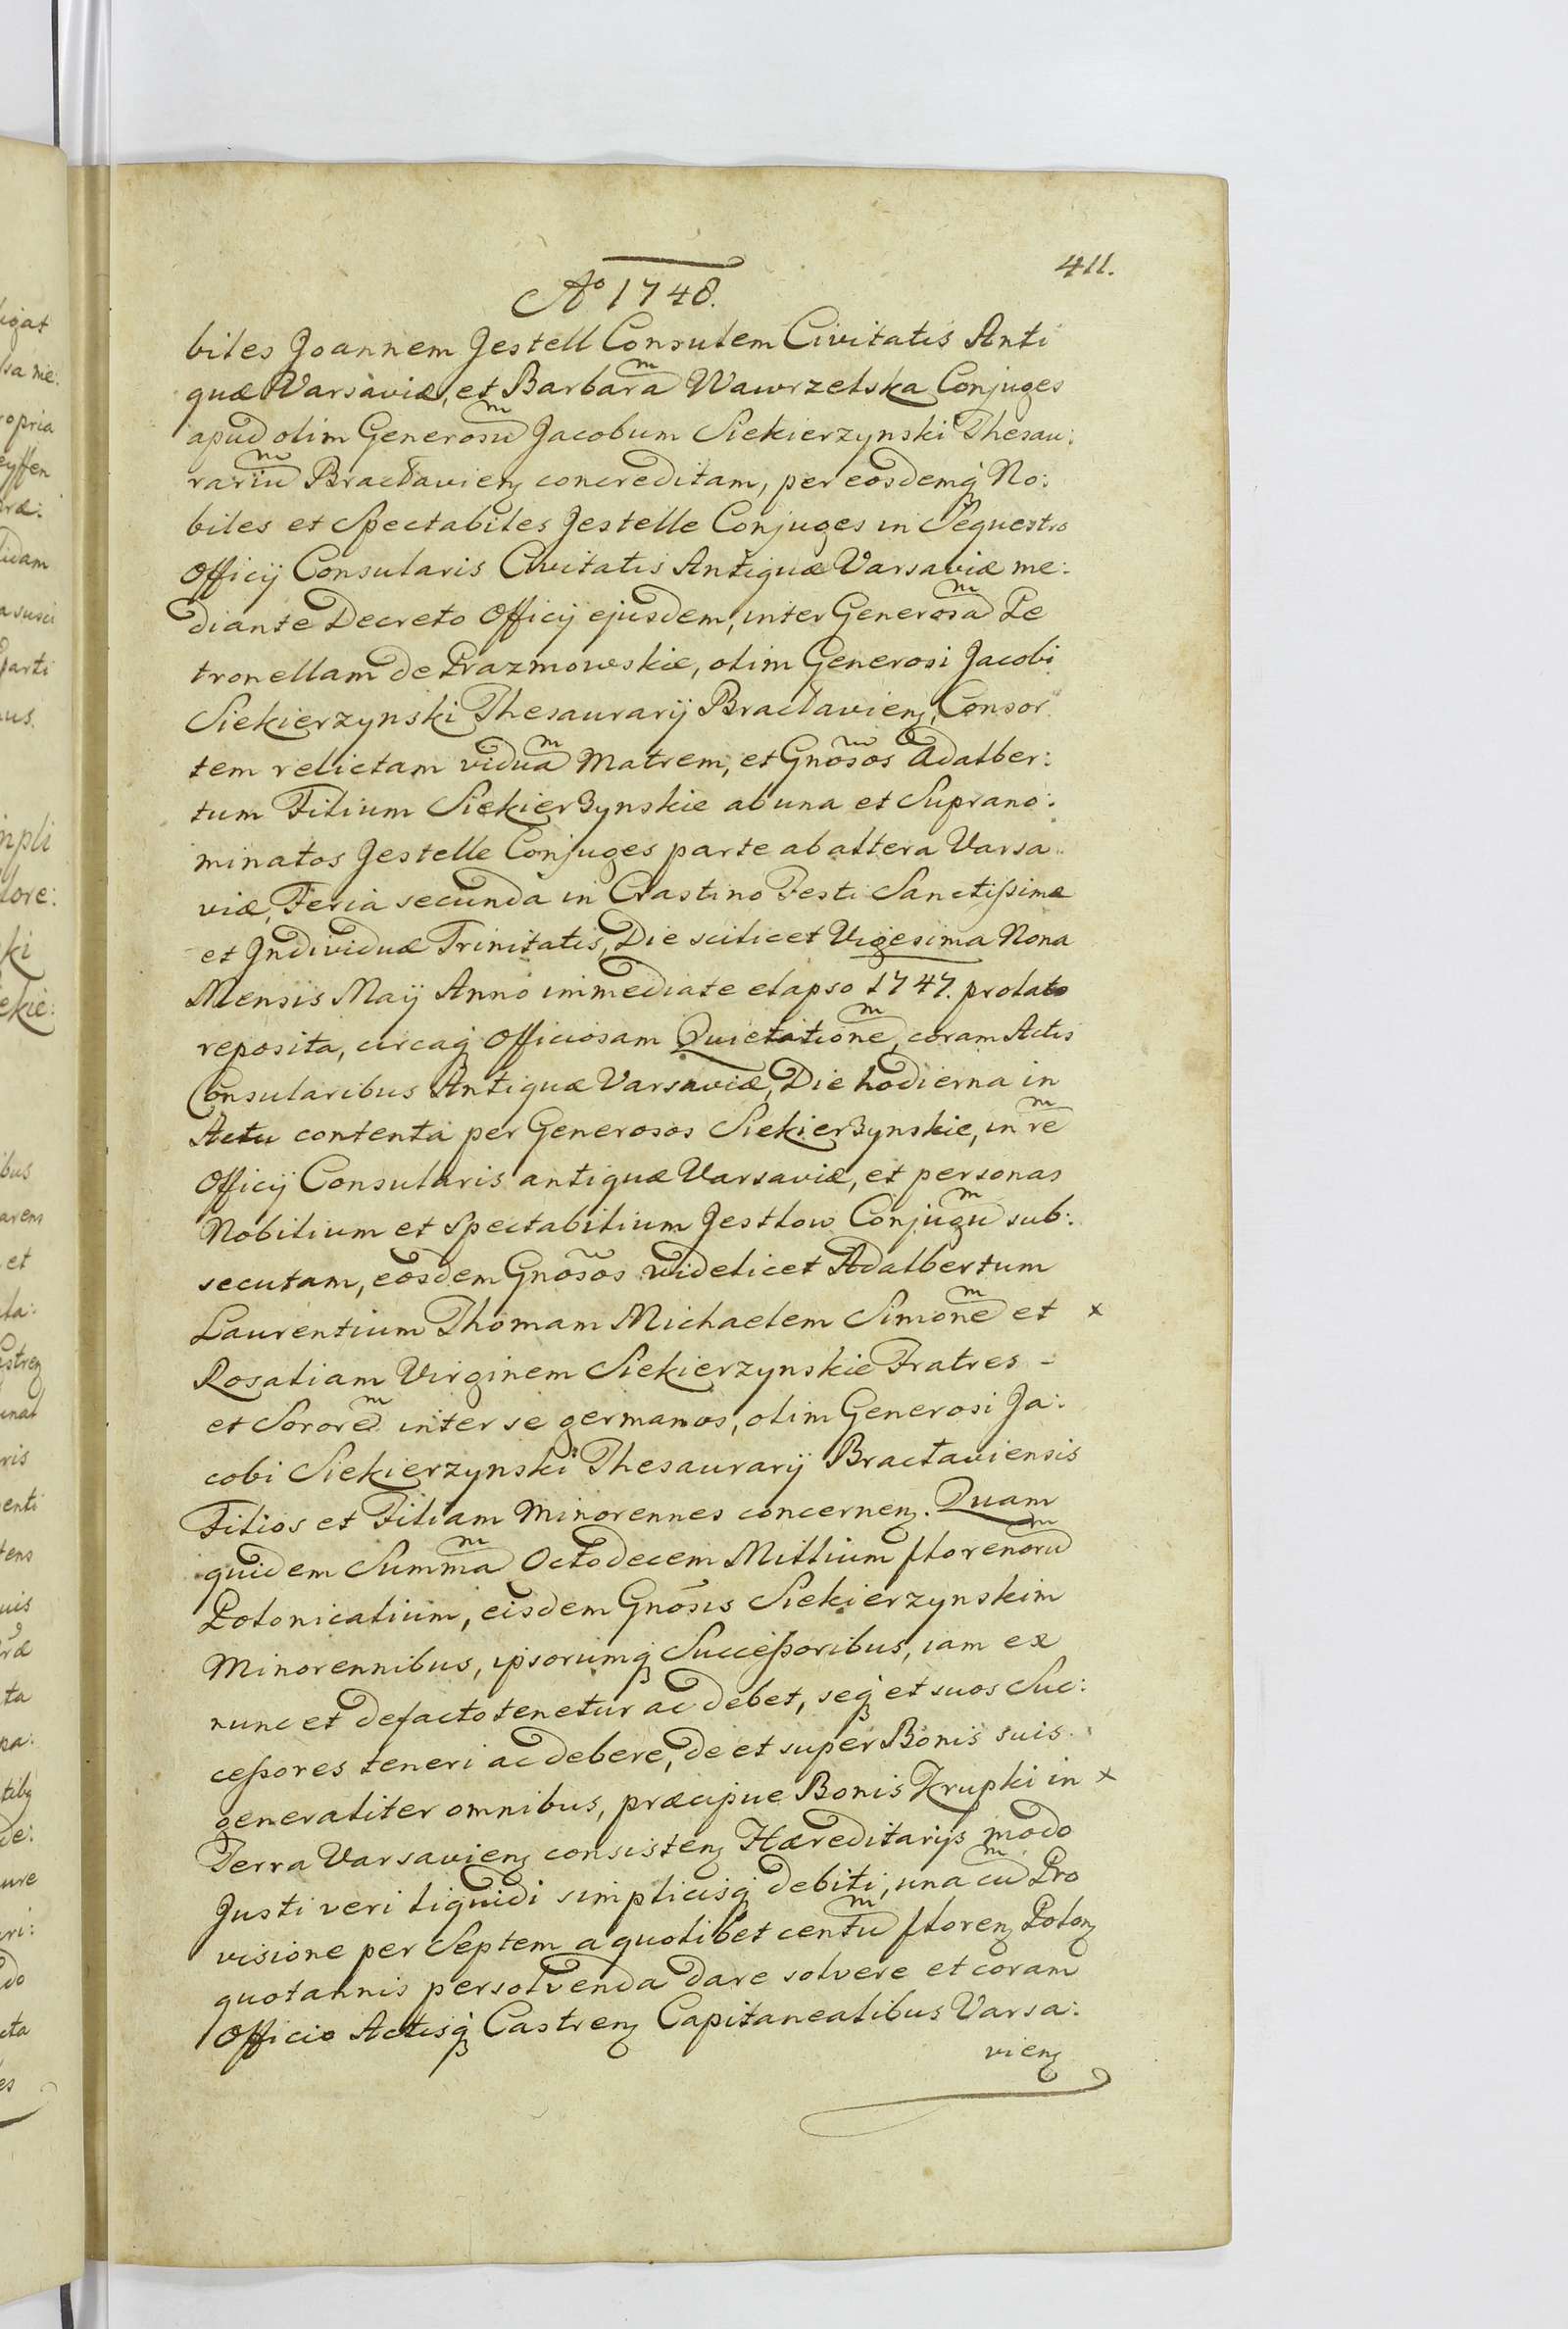 411.
Aº 1748.
biles Joannem Jestell Consulem Civitatis Anti
quæ Varsaviæ, et Barbaraᵐ Wawrzelska Conjuges
apud olim Generosuᵐ Jacobum Siekierzynski Thesau:
rariuᵐ Braclavienꝫ concreditam, per eosdemqꝫ No:
biles et Spectabiles Jestelle Conjuges in Sequestro
Officij Consularis Civitatis Antiquæ Varsaviæ me:
diante Decreto Officij ejusdem, inter Generosaᵐ Pe
tronellam de Prazmowskie, olim Generosi Jacobi
Siekierzynski Thesaurarij Braclavienꝫ, Consor
tem relictam viduaᵐ Matrem, et Gnosos Adalber:
tum Filium Siekierzynskie ab una et Suprano:
minatos Jestelle Conjuges parte ab altera Varsa:
viæ, Feria secunda in Crastino Festi Sanctissimæ
et Individuæ Trinitatis, Die scilicet Vigesima Nona
Mensis Maij Anno immediate elapso 1747. prolato
reposita, circaqꝫ Officiosam Quietationeᵐ, coram Actis
Consularibus Antiquæ Varsaviæ, Die hodierna in
Actu contenta per Generosos Siekierzynskie, in reᵐ
Officij Consularis antiquæ Varsaviæ, et personas
Nobilium et Spectabilium Jestlow Conjuguᵐ sub:
secutam, eosdem Gnosos videlicet Adalbertum
Laurentium Thomam Michaelem Simoneᵐ et x
Rosaliam Virginem Siekierzynskie Fratres -
et Sororeᵐ inter se germanos, olim Generosi Ja:
cobi Siekierzynski Thesaurarij Braclaviensis
Filios et Filiam Minorennes concernenꝫ. Quam
quidem Summaᵐ Octodecem Millium florenoruᵐ
Polonicalium, eisdem Gnosis Siekierzynskim
Minorennibus, ipsorumqꝫ Successoribus, iam ex
nunc et defacto tenetur ac debet, seqꝫ et suos Suc:
cessores teneri ac debere, de et super Bonis suis
generaliter omnibus, præcipue Bonis Krupki in x
Terra Varsavienꝫ consistenꝫ Hæreditarijs modo
Justi veri liquidi simplicisqꝫ debiti, una cuᵐ Pro
visione per Septem a quolibet centuᵐ florenꝫ Polonꝫ
quotannis persolvenda dare solvere et coram
Officio Actisqꝫ Castrenꝫ Capitanealibus Varsa:
vienꝫ